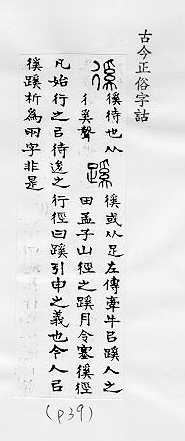 古今正俗字詁
徯 徯待也从
彳奚聲
蹊 徯或从足左傳牽牛㠯蹊人之
田孟子山徑之蹊月令塞徯徑
凡始行之㠯待後之行徑曰蹊引申之義也今人㠯
徯蹊析為兩字非是
(p39)